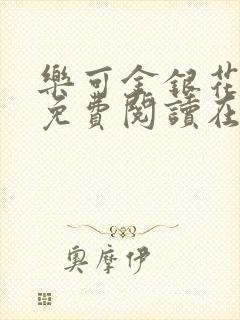 樂可金銀花
免費閱讀在
奧摩伊